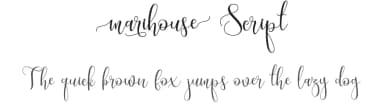 marihouse Script
The quick brown fox jumps over the lazy dog